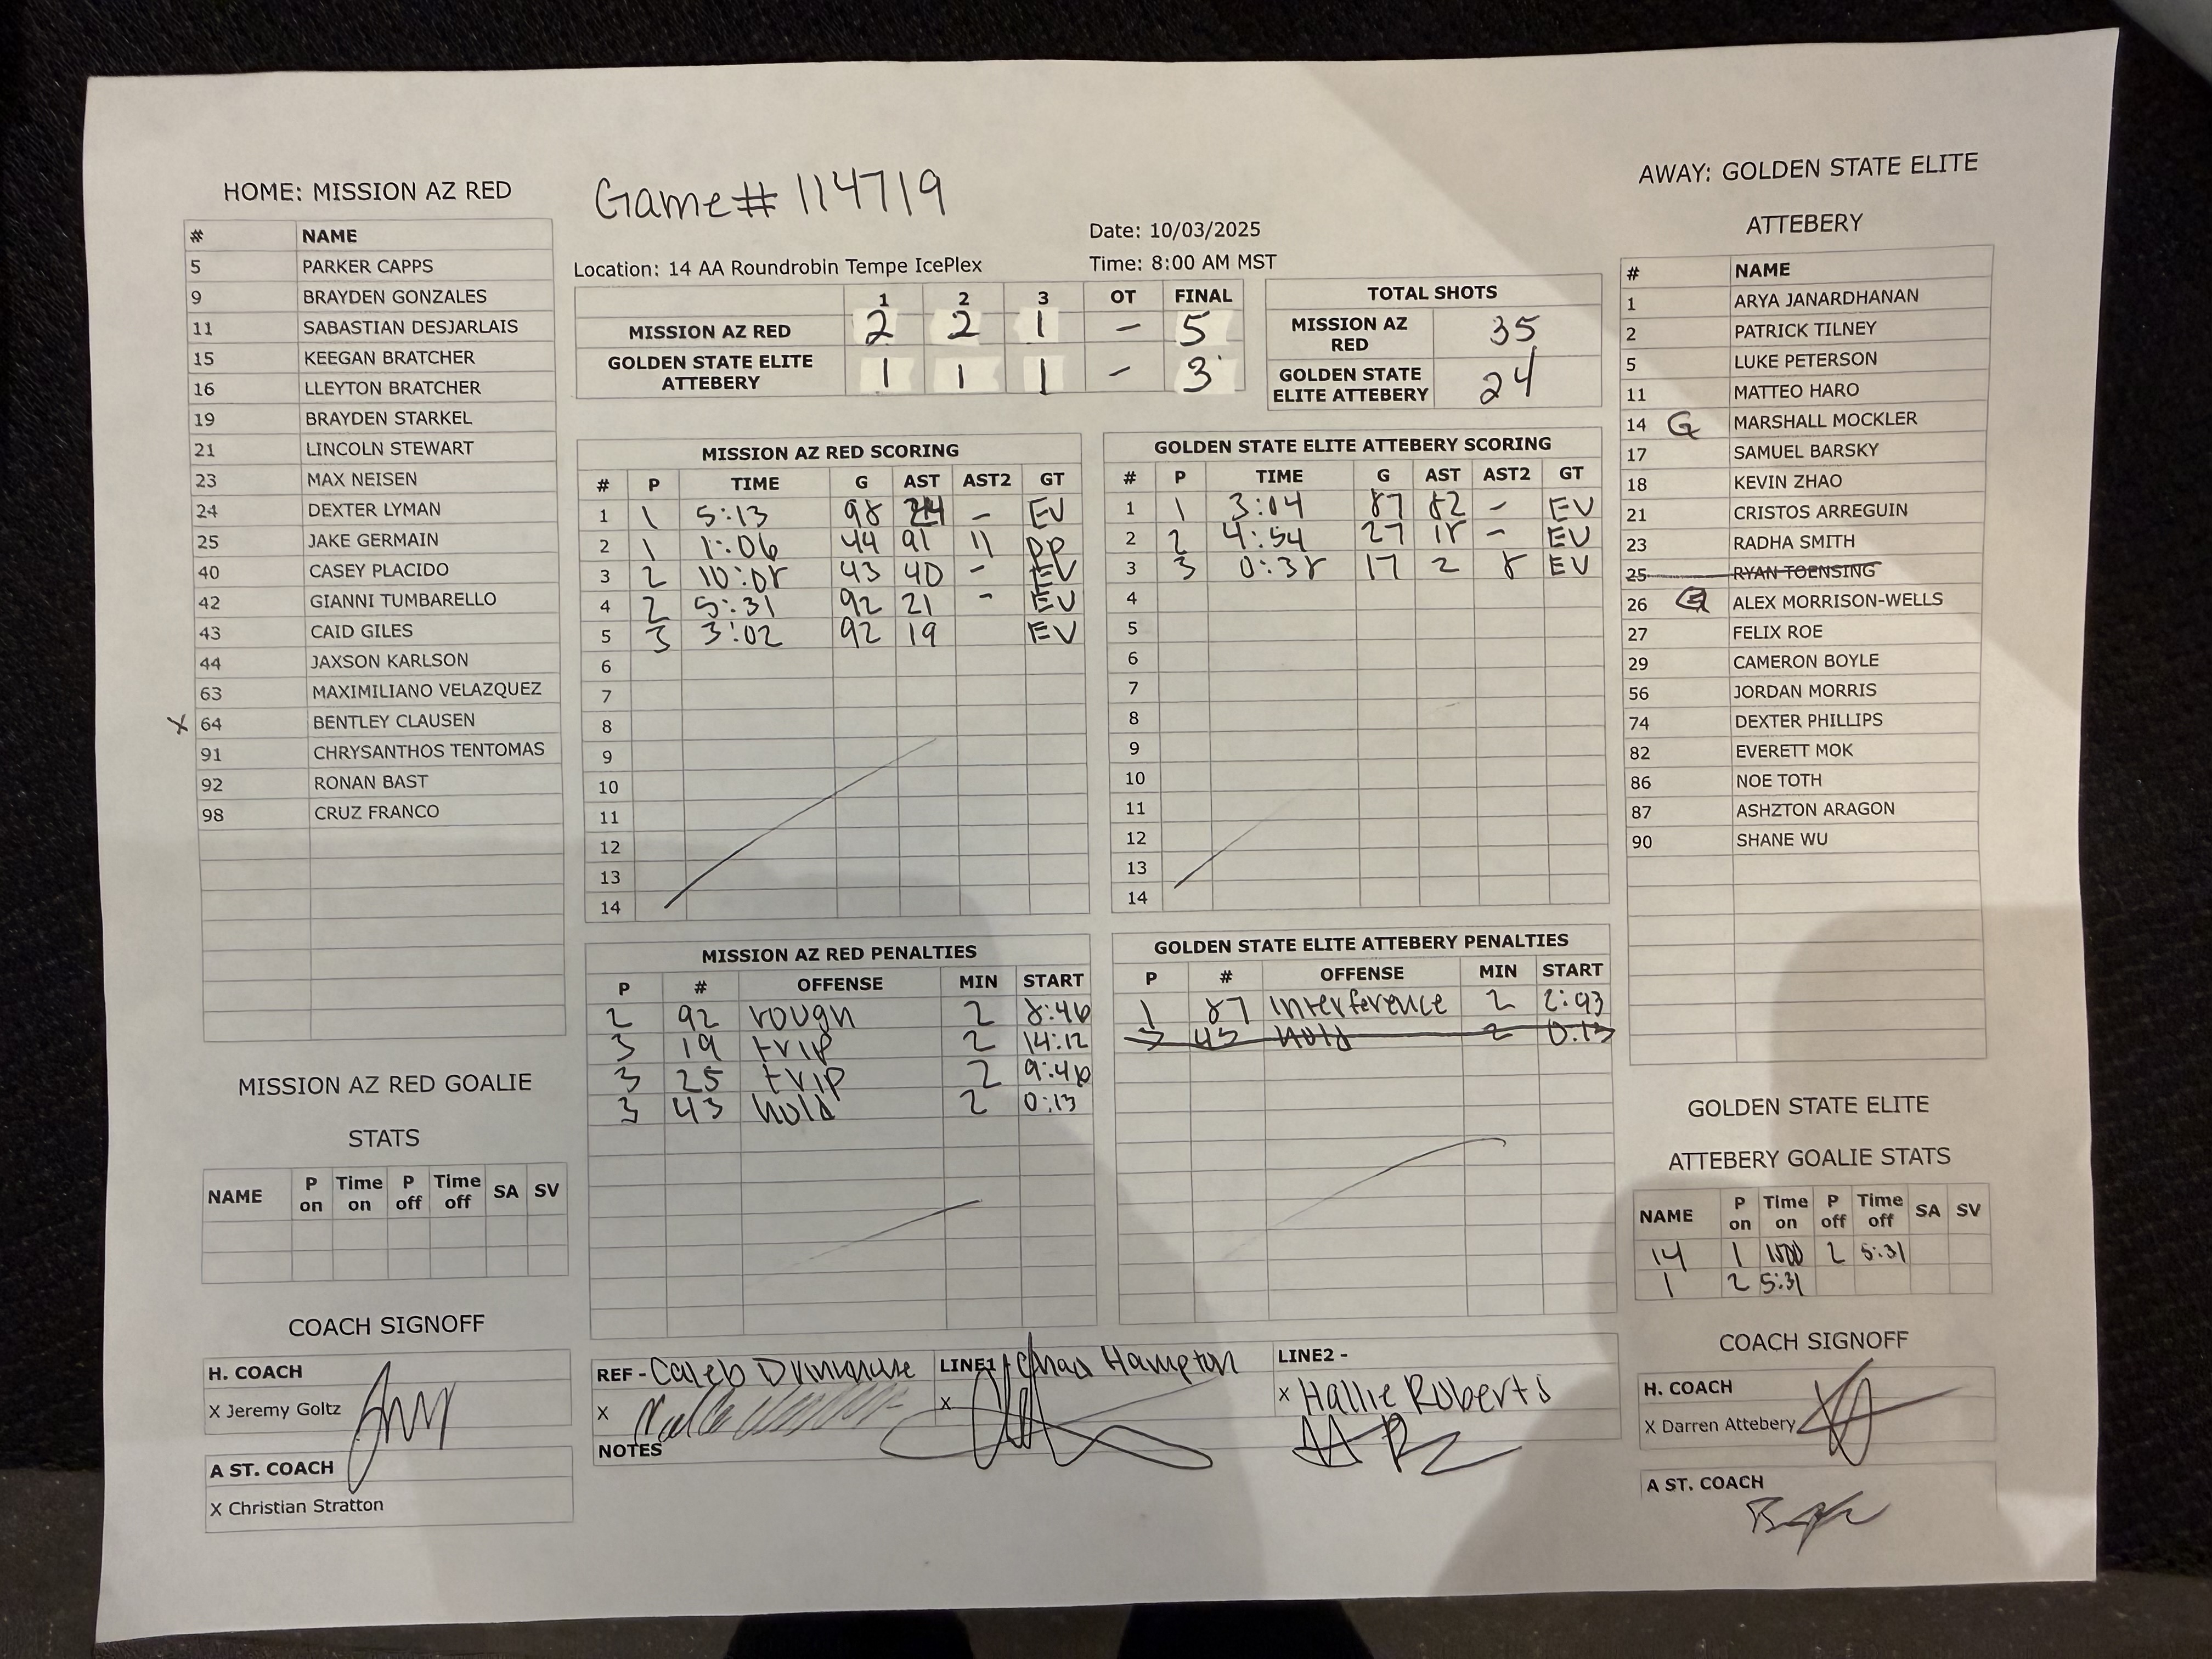 Game# 114719
HOME: MISSION AZ RED
# NAME
5 PARKER CAPPS
9 BRAYDEN GONZALES
11 SABASTIAN DESJARLAIS
15 KEEGAN BRATCHER
16 LLEYTON BRATCHER
19 BRAYDEN STARKEL
21 LINCOLN STEWART
23 MAX NEISEN
24 DEXTER LYMAN
25 JAKE GERMAIN
40 CASEY PLACIDO
42 GIANNI TUMBARELLO
43 CAID GILES
44 JAXSON KARLSON
63 MAXIMILIANO VELAZQUEZ
X 64 BENTLEY CLAUSEN
91 CHRYSANTHOS TENTOMAS
92 RONAN BAST
98 CRUZ FRANCO
MISSION AZ RED GOALIE
STATS
NAME P on Time on P off Time off SA SV
COACH SIGNOFF
H. COACH
X Jeremy Goltz
A ST. COACH
X Christian Stratton
Date: 10/03/2025
Location: 14 AA Roundrobin Tempe IcePlex
Time: 8:00 AM MST
1 2 3 OT FINAL
MISSION AZ RED 2 2 1 - 5
GOLDEN STATE ELITE ATTEBERY 1 1 1 - 3
TOTAL SHOTS
MISSION AZ RED 35
GOLDEN STATE ELITE ATTEBERY 24
MISSION AZ RED SCORING
# P TIME G AST AST2 GT
1 1 5:13 98 24 - EV
2 1 1:06 44 91 11 PP
3 2 10:08 43 40 - EV
4 2 5:31 92 21 - EV
5 3 3:02 92 19 EV
6
7
8
9
10
11
12
13
14
GOLDEN STATE ELITE ATTEBERY SCORING
# P TIME G AST AST2 GT
1 1 3:04 87 82 - EV
2 2 4:54 27 18 - EV
3 3 0:38 17 2 8 EV
4
5
6
7
8
9
10
11
12
13
14
MISSION AZ RED PENALTIES
P # OFFENSE MIN START
2 92 rough 2 8:46
3 19 trip 2 14:12
3 25 trip 2 9:46
3 43 hold 2 0:13
GOLDEN STATE ELITE ATTEBERY PENALTIES
P # OFFENSE MIN START
1 87 Interference 2 2:93
3 43 hold 2 0:13
REF - Caleb
X
LINE1 - Chad Hampton
X
LINE2 -
X Hallie Roberts
NOTES
AWAY: GOLDEN STATE ELITE
ATTEBERY
# NAME
1 ARYA JANARDHANAN
2 PATRICK TILNEY
5 LUKE PETERSON
11 MATTEO HARO
14 G MARSHALL MOCKLER
17 SAMUEL BARSKY
18 KEVIN ZHAO
21 CRISTOS ARREGUIN
23 RADHA SMITH
25 RYAN TOENSING
26 G ALEX MORRISON-WELLS
27 FELIX ROE
29 CAMERON BOYLE
56 JORDAN MORRIS
74 DEXTER PHILLIPS
82 EVERETT MOK
86 NOE TOTH
87 ASHZTON ARAGON
90 SHANE WU
GOLDEN STATE ELITE
ATTEBERY GOALIE STATS
NAME P on Time on P off Time off SA SV
14 1 2 5:31
1 2 5:31
COACH SIGNOFF
H. COACH
X Darren Attebery
A ST. COACH